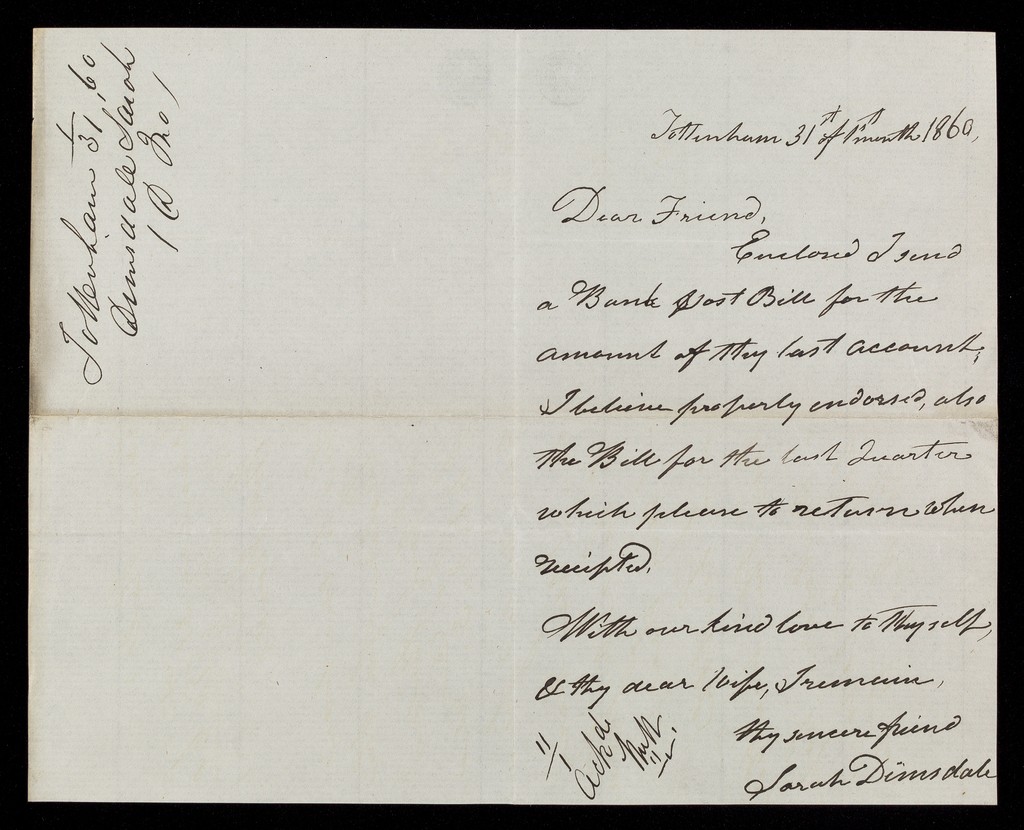 Tottenham 31/1 '60
Dimsdale Sarah
Tottenham 31st of 1st month 1860,
Dear Friend,
Enclosed I send
a Bank Post Bill for the
amount of thy last account,
I believe properly endorsed, also
the Bill for the last Quarter
which please to return when
receipted.
With our kind love to Thyself,
& thy dear Wife, I remain,
thy sincere friend
Sarah Dimsdale
Ackd